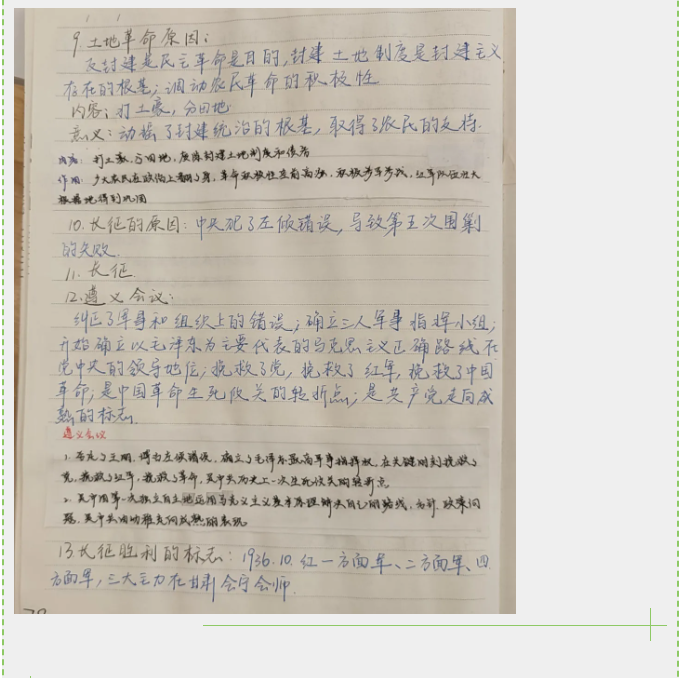 9.土地革命原因:
反封建是民主革命是目的,封建土地制度是封建主义
存在的根基;调动农民革命的积极性
内容:打土豪,分田地
意义:动摇了封建统治的根基,取得了农民的支持.
内容:打土豪,分田地,废除封建土地制度和债务
作用:广大农民在政治上翻了身,革命积极性空前高涨,积极参军参战,红军队伍壮大
根据地得到巩固
10.长征的原因:中央犯了左倾错误,导致第五次围剿
的失败.
11.长征
12.遵义会议:
纠正了军事和组织上的错误;确立三人军事指挥小组;
开始确立以毛泽东为主要代表的马克思主义正确路线在
党中央的领导地位;挽救了党,挽救了红军,挽救了中国
革命;是中国革命生死攸关的转折点;是共产党走向成
熟的标志.
遵义会议
1.否定了王明、博古左倾错误,确立了毛泽东最高军事指挥权,在关键时刻挽救了
党,挽救了红军,挽救了革命,是中共历史上一次生死攸关的转折点
2.是中国第一次独立自主地运用马克思主义基本原理解决自己的路线,方针 政策问
题,是中共由幼稚走向成熟的表现
13.长征胜利的标志:1936.10.红一方面军、二方面军、四
方面军,三大主力在甘肃会宁会师.